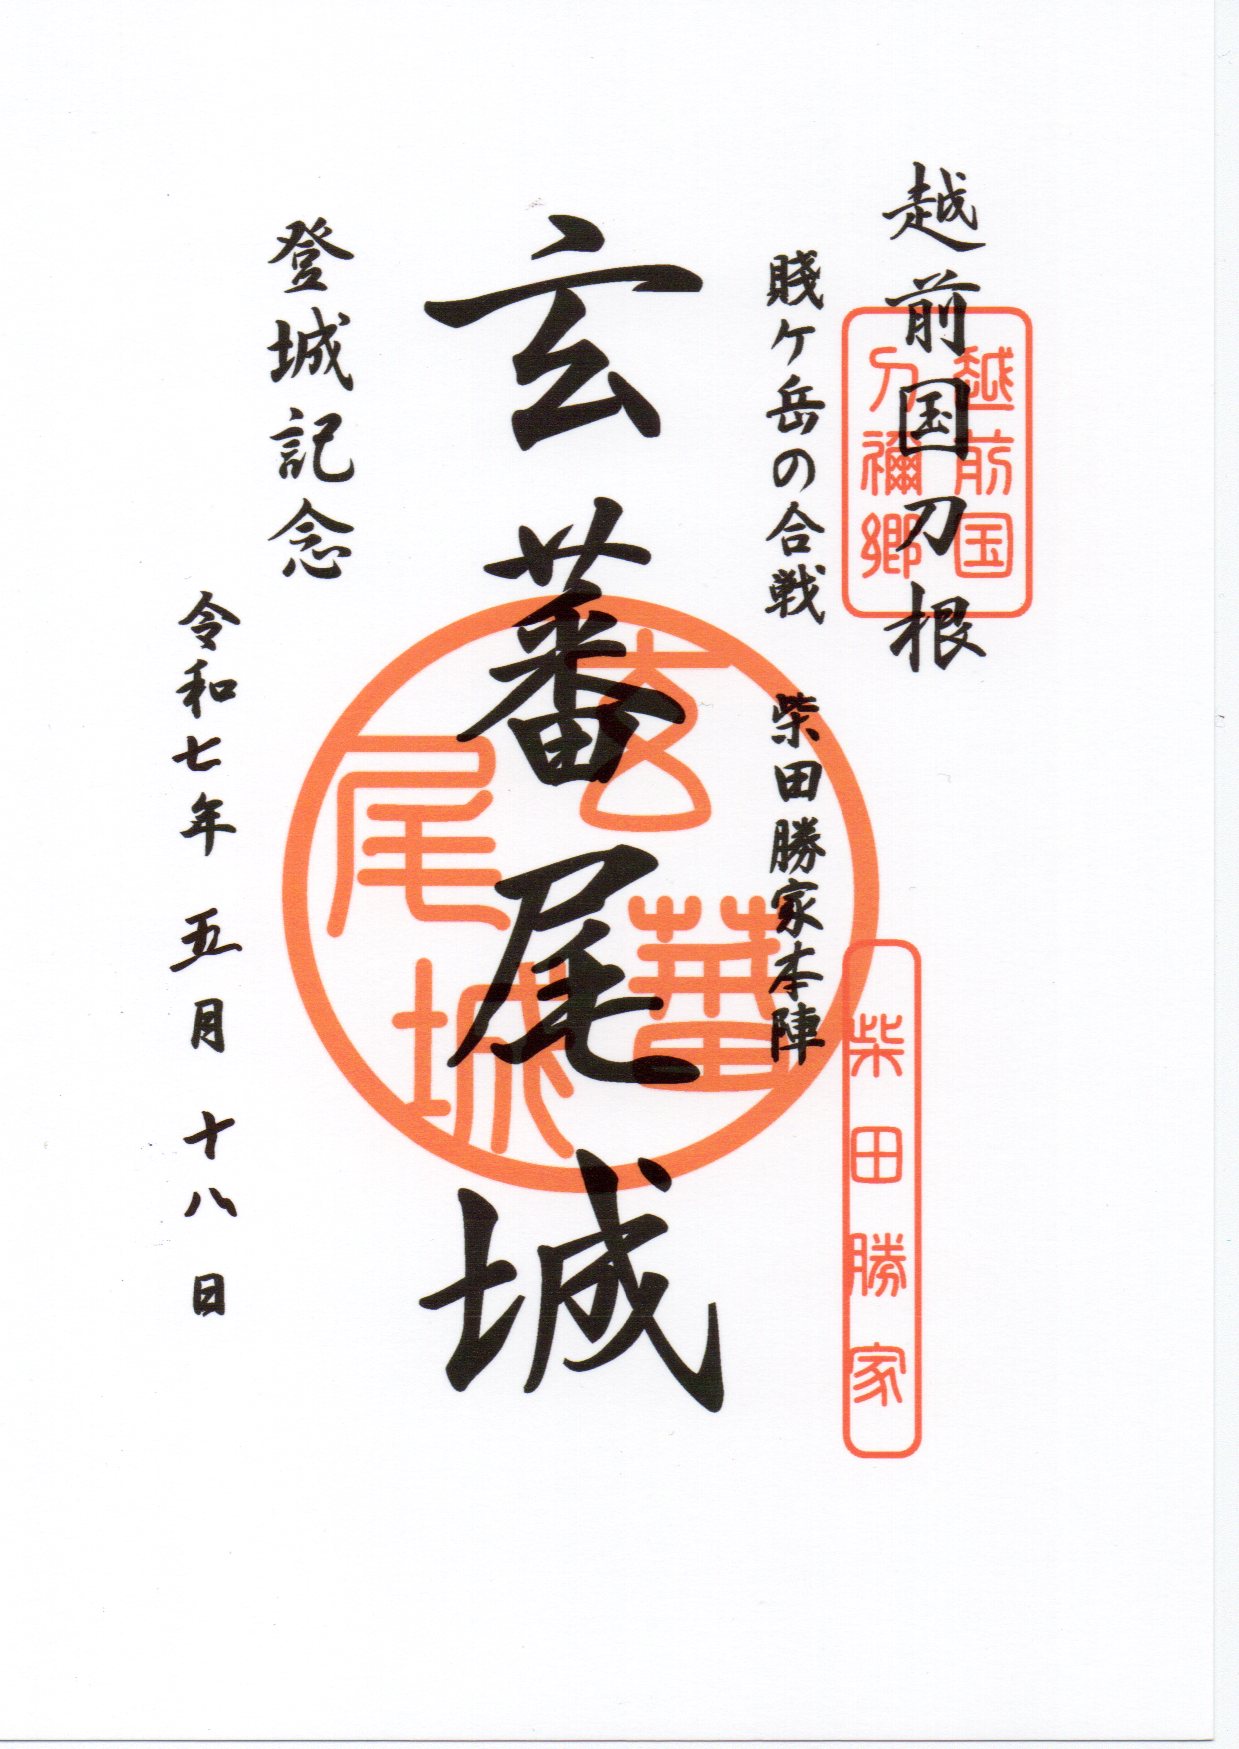 越前国刀根
越前国
刀禰郷
賤ケ岳の合戦 柴田勝家本陣
柴田勝家
玄蕃尾城
玄蕃
尾城
登城記念
令和七年 五月 十八日